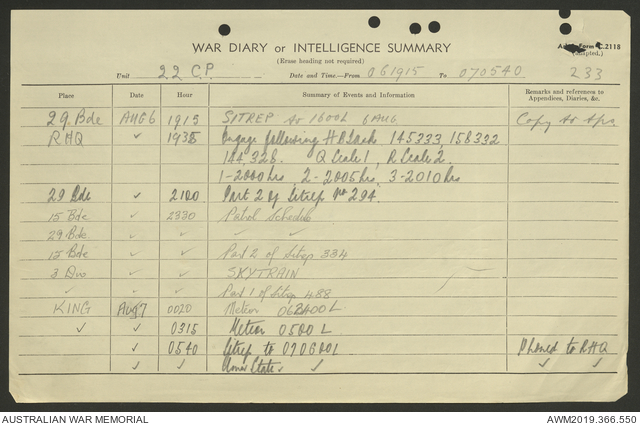 Army Form C.2118
(Adapted.)
WAR DIARY or INTELLIGENCE SUMMARY
(Erase heading not required)
Unit 22 C.P. Date and Time—From 061915 To 070540 233
Place Date Hour Summary of Events and Information Remarks and references to Appendices, Diaries, &c.
29 Bde AUG 6 1915 SITREP to 1600L 6 AUG Copy to
RHQ ✓ 1935 Engage following 145333, 158332
144,328. Q Scale 1, R Scale 2.
1-2000hrs 2-2005hrs, 3-2010hrs
29 Bde ✓ 2100 Part 2 of Sitrep No 294.
15 Bde ✓ 2330 Patrol Schedule
29 Bde ✓ ✓ ✓ ✓
15 Bde ✓ ✓ Part 2 of Sitrep 334
3 Div ✓ ✓ SKYTRAIN
✓ ✓ ✓ Part 1 of Sitrep 488
KING Aug 7 0020 Meteor 062400L
✓ ✓ 0315 Meteor 0500L
✓ 0540 Sitrep to 070600L Phoned to RHQ
✓ ✓ State ✓ ✓ ✓
AUSTRALIAN WAR MEMORIAL AWM2019.366.550